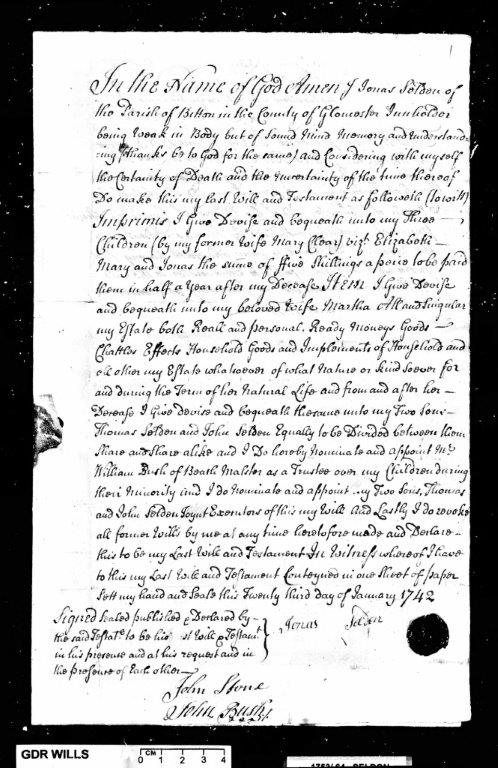 1
In the Name of God Amen I Jonas Selden of
the Parish of Bitton in the County of Gloucester Innholder
being Weak in Body but of Sound Mind Memory and Understand-
ing (thanks be to God for the same) and Considering with myself
the Certainty of Death and the uncertainty of the time thereof
Do make this my last Will and Testament as followeth (to witt)
Imprimis I Give Devise and bequeath unto my Three
Children (by my former Wife Mary Clear) vizt. Elizabeth
Mary and Jonas the sume of ffive Shillings a peice to be paid
them in half a Year after my Decease Item I Give Devise
and bequeath unto my beloved Wife Martha All and Singular
my Estate both Reall and personal. Ready Moneys Goods
Chattles Effects Household Goods and Implements of Household and
all other my Estate whatsoever of what Nature or kind soever for
and during the Term of her Natural Life and from and after her
Decease I Give Devise and bequeath the same unto my Two Sons
Thomas Selden and John Selden Equally to be Divided between them
Share and Share alike and I Do hereby Nominate and appoint Mr.
William Bush of Beath Malster as a Trustee over my Children during
their Minority and I do Nominate and appoint my Two Sons, Thomas
and John Selden Joynt Executors of this my Will And Lastly I do revoke
all former Wills by me at any time heretofore made and Declare
this to be my Last Will and Testament In Witness whereof I have
to this my Last Will and Testament Conteyned in one Sheet of paper
Sett my hand and Seale this Twenty third day of January 1742
Signed Sealed published & Declared by
the said Testatr. to be his st Will & Testamt
in his presence and at his request and in
the presence of Each other
Jonas Selden
John Stone
John Bush
GDR WILLS
CM 1 2 3 4
SELDON